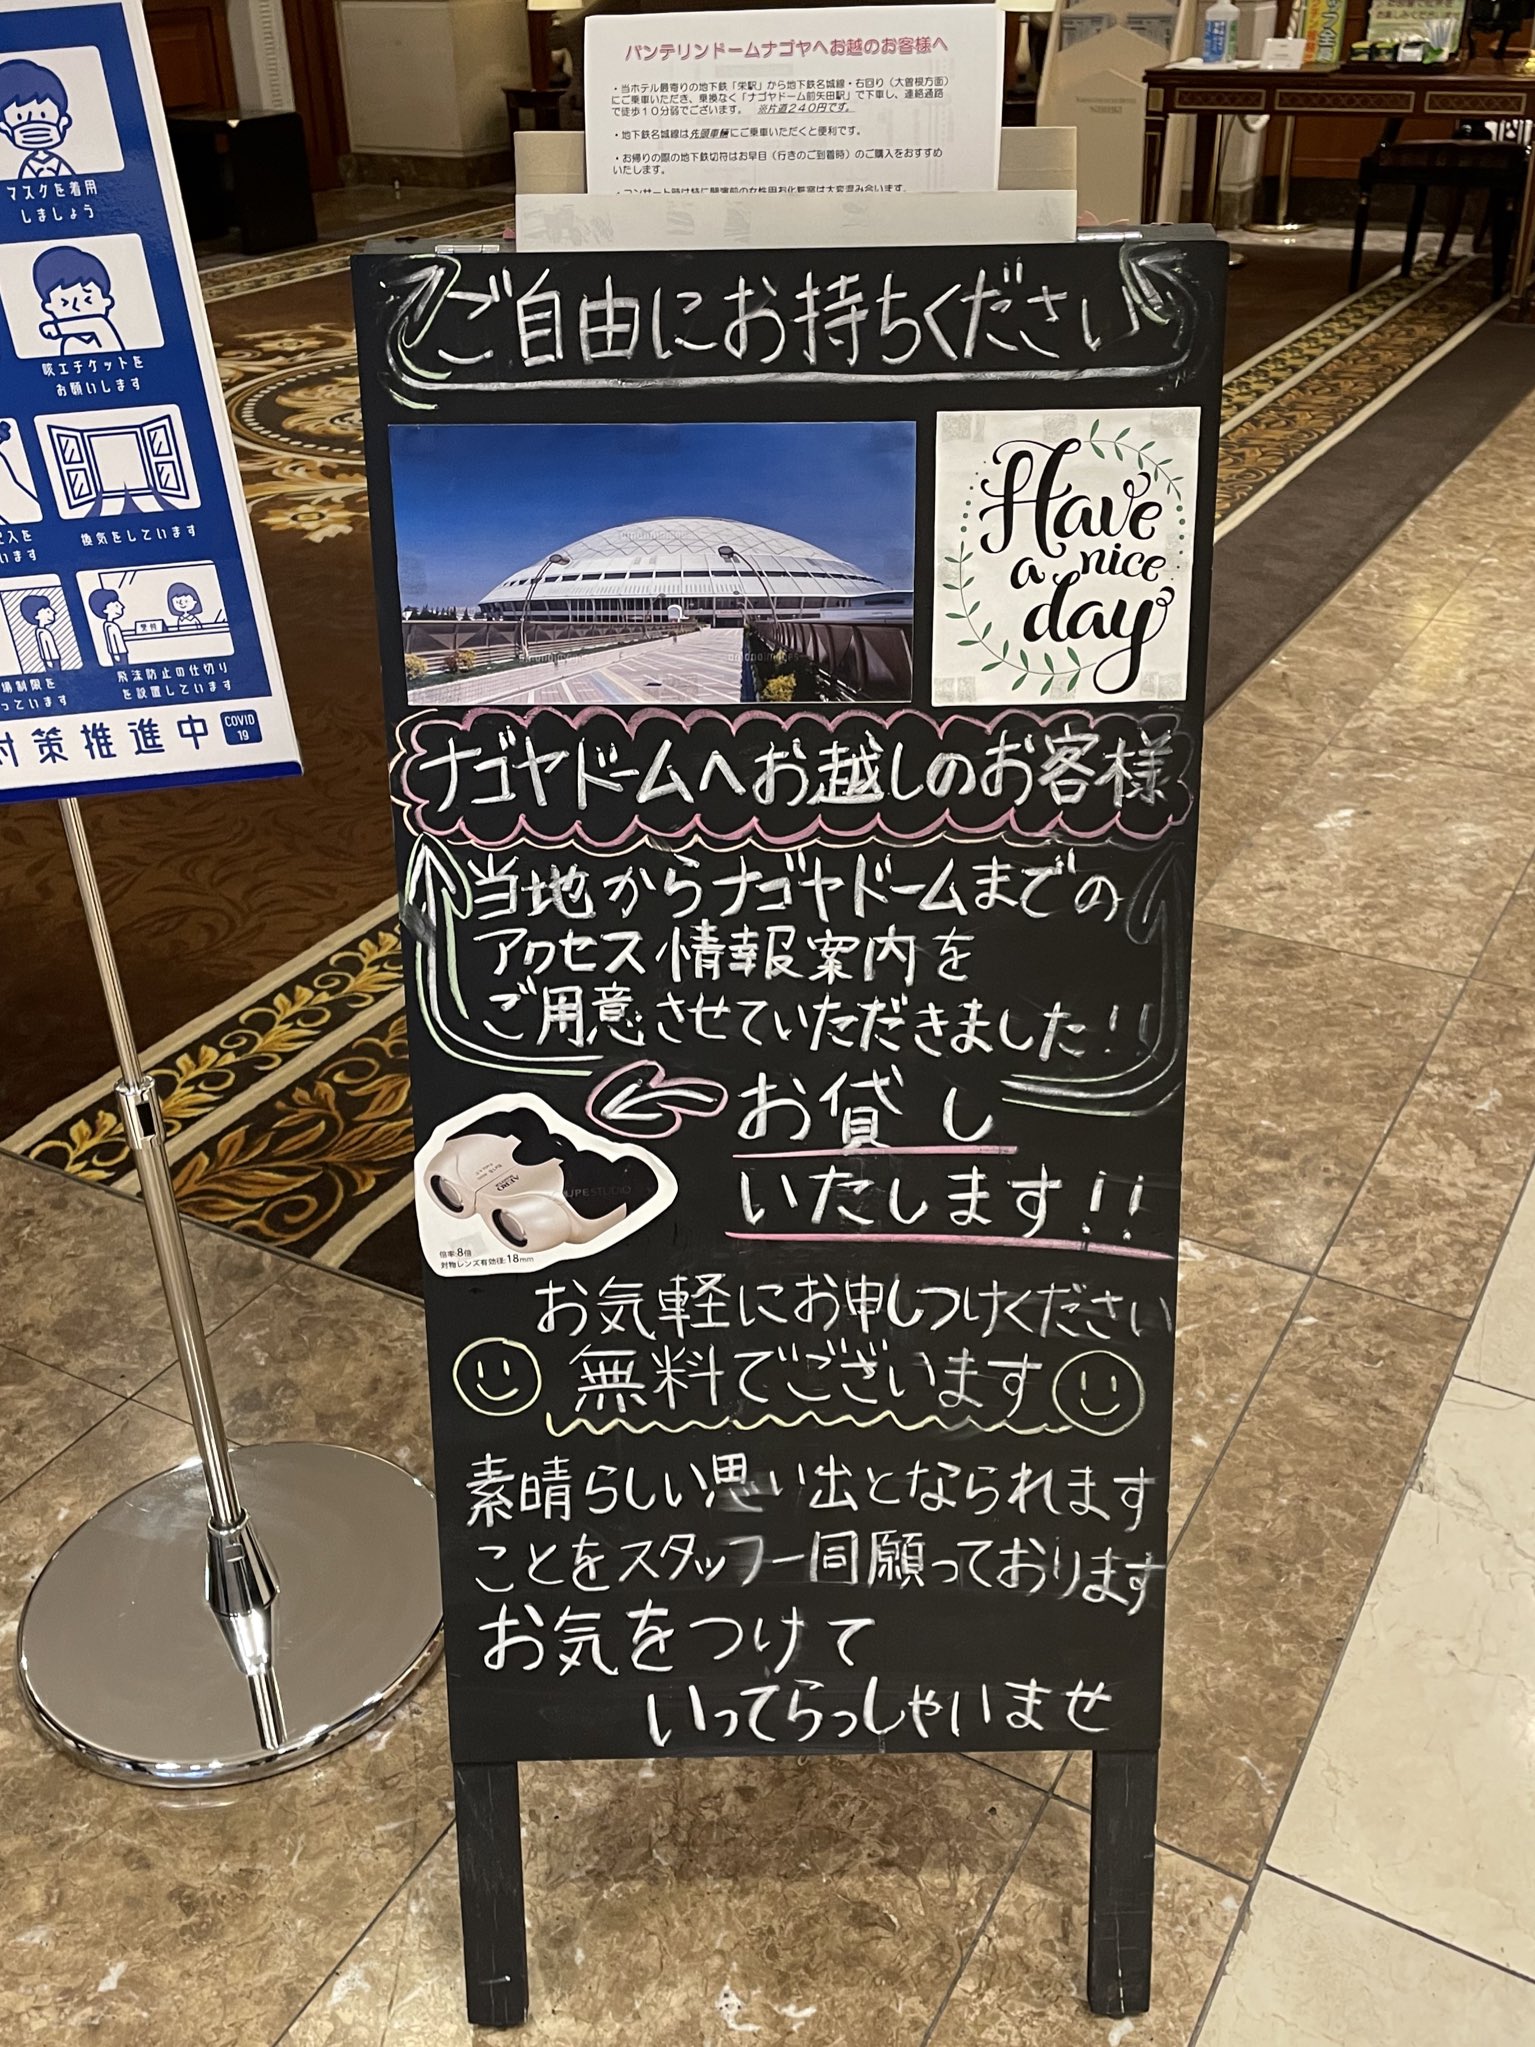 バンテリンドームナゴヤへお越のお客様へ
・当ホテル最寄りの地下鉄「栄駅」から地下鉄名城線・右回り(大曽根方面)
にご乗車いただき、乗換なく「ナゴヤドーム前矢田駅」で下車し、連絡通路
で徒歩10分弱でございます。 ※片道240円です。
・地下鉄名城線は先頭車輛にご乗車いただくと便利です。
・お帰りの際の地下鉄切符はお早目(行きのご到着時)のご購入をおすすめ
いたします。
・コンサート時は特に開演前の女性用お化粧室は大変混み合います。
ご自由にお持ちください
Have
a nice
day
ナゴヤドームへお越しのお客様
当地からナゴヤドームまでの
アクセス情報案内を
ご用意させていただきました!!
お貸し
いたします!!
倍率:8倍
対物レンズ有効径:18mm
お気軽にお申しつけください
無料でございます
素晴らしい思い出となられます
ことをスタッフ一同願っております
お気をつけて
いってらっしゃいませ
マスクを着用
しましょう
咳エチケットを
お願いします
換気をしています
飛沫防止の仕切り
を設置しています
対策推進中
COVID
19